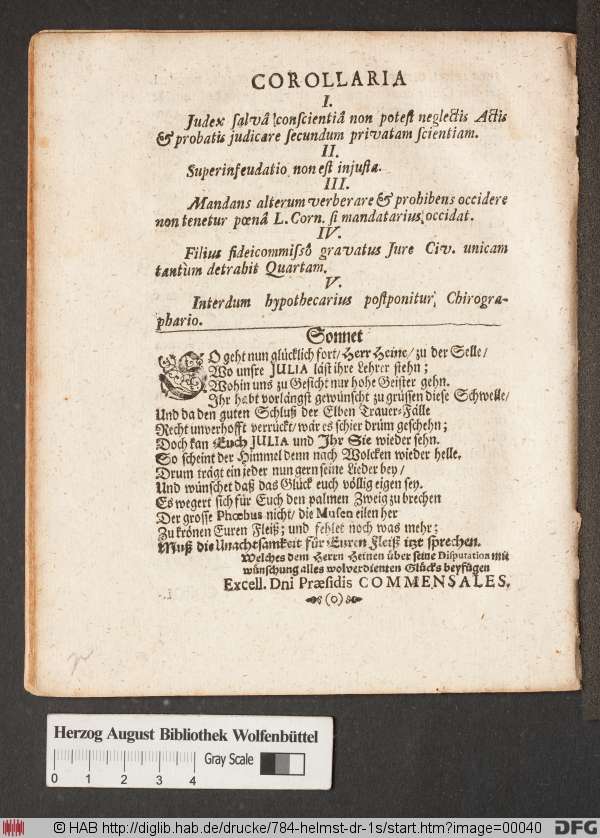 COROLLARIA
I.
Judex ſalvâ conſcientiâ non poteſt neglectis Actis
& probatis judicare ſecundum privatam ſcientiam.
II.
Superinfeudatio non eſt injuſta.
III.
Mandans alterum verberare & prohibens occidere
non tenetur pœnâ L. Corn. ſi mandatarius occidat.
IV.
Filius fideicommiſſô gravatus Jure Civ. unicam
tantùm detrahit Quartam.
V.
Interdum hypothecarius poſtponitur Chirogra-
phario.
Sonnet
SO geht nun glücklich fort/ Herr Heine/ zu der Selle/
Wo unſre JULIA läſt ihre Lehrer ſtehn;
Wohin uns zu Geſicht nur hohe Geiſter gehn.
Ihr habt vorlängſt gewünſcht zu grüſſen dieſe Schwelle/
Und da den guten Schluß der Elben Trauer-Fälle
Recht unverhofft verrückt/ wär es ſchier drüm geſchehn;
Doch kan Euch JULIA und Ihr Sie wieder ſehn.
So ſcheint der Himmel denn nach Wolcken wieder helle.
Drum trägt ein jeder nun gern ſeine Lieder bey/
Und wünſchet daß das Glück euch völlig eigen ſey.
Es wegert ſich für Euch den palmen Zweig zu brechen
Der groſſe Phœbus nicht/ die Muſen eilen her
Zu krönen Euren Fleiß; und fehlet noch was mehr;
Muß die Unachtſamkeit für Euren Fleiß itzt ſprechen.
Welches dem Herrn Heinen über ſeine Diſputation mit
wünſchung alles wolverdienten Glücks beyfügen
Excell. Dni Præſidis COMMENSALES.
(o)
Herzog August Bibliothek Wolfenbüttel
Gray Scale
0 1 2 3 4
© HAB http://diglib.hab.de/drucke/784-helmst-dr-1s/start.htm?image=00040
DFG